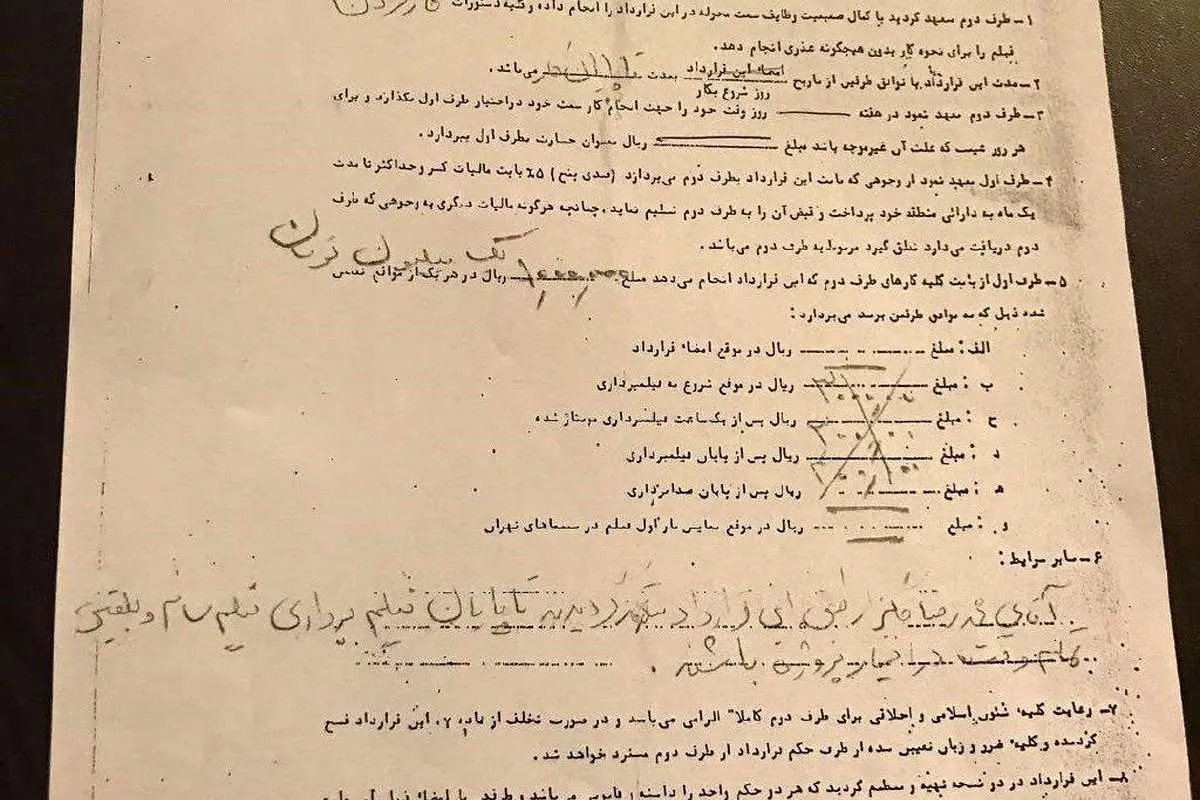 ۱ـ طرف دوم متعهد گردید با کمال صمیمیت وظایف سمت محوله در این قرارداد را انجام داده و کلیه دستورات کارگردان
فیلم را برای نحوه کار بدون هیچگونه عذری انجام دهد.
۲ـ مدت این قرارداد با توافق طرفین از تاریخ امضاء این قرارداد بمدت تا پایان می‌باشد.
روز شروع بکار
۳ـ طرف دوم متعهد نمود در هفته روز وقت خود را جهت انجام کار سمت خود در اختیار طرف اول بگذارد و برای
هر روز غیبت که علت آن غیرموجه باشد مبلغ ریال بعنوان خسارت بطرف اول بپردازد.
۴ـ طرف اول متعهد نمود از وجوهی که بابت این قرارداد بطرف دوم می‌پردازد (صدی پنج) ۵٪ بابت مالیات کسر و حداکثر تا مدت
یک ماه به دارائی منطقه خود پرداخت و قبض آن را به طرف دوم تسلیم نماید. چنانچه هرگونه مالیات دیگری به وجوهی که طرف
دوم دریافت می‌دارد تعلق گیرد مربوط به طرف دوم می‌باشد.
یک میلیون تومان
۵ـ طرف اول از بابت کلیه کارهای طرف دوم که این قرارداد انجام می‌دهد مبلغ ریال در هر یک از مواقع تعیین
شده ذیل که به توافق طرفین برسد می‌پردازد:
الف: مبلغ ریال در موقع امضاء قرارداد
ب: مبلغ ریال در موقع شروع به فیلمبرداری
ج: مبلغ ریال پس از یکساعت فیلمبرداری مونتاژ شده
د: مبلغ ریال پس از پایان فیلمبرداری
ه: مبلغ ریال پس از پایان صدابرداری
و: مبلغ ریال در موقع نمایش بار اول فیلم در سینماهای تهران
۶ـ سایر شرایط:
آقای طبق این قرارداد متعهد گردیدند تا پایان فیلم برداری فیلم سام و
تمام وقت در اختیار پروژه باشند.
۷ـ رعایت کلیه شئون اسلامی و اخلاقی برای طرف دوم کاملا" الزامی می‌باشد و در صورت تخلف از ماده ۷، این قرارداد فسخ
گردیده و کلیه ضرر و زیان تعیین شده از طرف حکم قرارداد از طرف دوم مسترد خواهد شد.
۸ـ این قرارداد در دو نسخه تهیه و تنظیم گردید که هر دو حکم واحد را داشته و قانونی می‌باشد و طرفین با امضاء